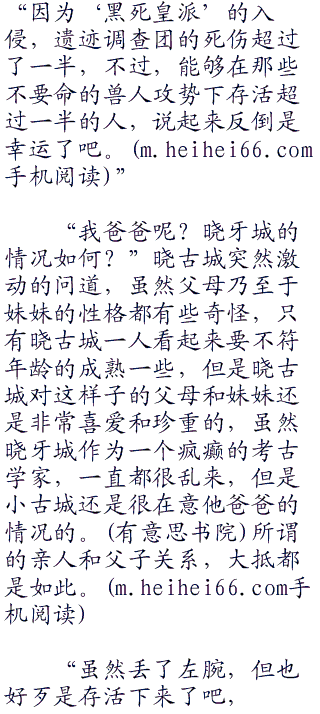 “因为‘黑死皇派’的入
侵，遗迹调查团的死伤超过
了一半，不过，能够在那些
不要命的兽人攻势下存活超
过一半的人，说起来反倒是
幸运了吧。(m.heihei66.com
手机阅读)”
“我爸爸呢？晓牙城的
情况如何？”晓古城突然激
动的问道，虽然父母乃至于
妹妹的性格都有些奇怪，只
有晓古城一人看起来要不符
年龄的成熟一些，但是晓古
城对这样子的父母和妹妹还
是非常喜爱和珍重的，虽然
晓牙城作为一个疯癫的考古
学家，一直都很乱来，但是
小古城还是很在意他爸爸的
情况的。(有意思书院)所谓
的亲人和父子关系，大抵都
是如此。(m.heihei66.com手
机阅读)
“虽然丢了左腕，但也
好歹是存活下来了吧，